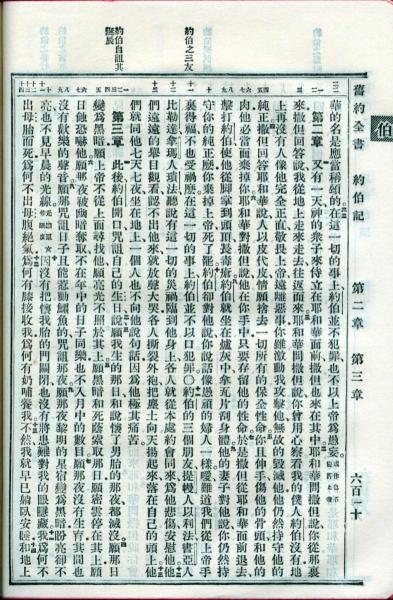 伯
舊約全書 約伯記 第二章 第三章 六百二十
約伯之三友
約伯自詛其誕辰
華的名是應當稱頌的在這一切的事上約伯並不犯罪也不以上帝爲愚妄
第二章 又有一天神的衆子來侍立在耶和華面前撒但也來在其中耶和華問撒但說你從那裏
來撒但回答說我從地上走來走去往返而來耶和華問撒但說你曾用心察看我的僕人約伯沒有地
上再沒有人像他完全正直敬畏上帝遠離惡事你雖激動我攻擊他無故的毀滅他他仍然持守他的
純正撒但回答耶和華說人以皮代皮情願捨去一切所有的保全性命你且伸手傷他的骨頭和他的
肉他必當面棄掉你耶和華對撒但說他在你手中只要存留他的性命於是撒但從耶和華面前退去
擊打約伯使他從腳掌到頭頂長毒瘡約伯就坐在爐灰中拿瓦片刮身體他的妻子對他說你仍然持
守你的純正麼你棄掉上帝死了罷約伯卻對他說你說話像愚頑的婦人一樣噯難道我們從上帝手
裏得福不也受禍麼在這一切的事上約伯並不以口犯罪○約伯的三個朋友提幔人以利法書亞人
比勒達拿瑪人瑣法聽說有這一切的災禍臨到他身上各人就從本處約會同來爲他悲傷安慰他他
們遠遠的舉目觀看認不出他來就放聲大哭各人撕裂外袍把塵土向天揚起來落在自己的頭上他
們就同他七天七夜坐在地上一個人也不向他說句話因爲他極其痛苦
第三章 此後約伯開口咒詛自己的生日說願我生的那日和說懷了男胎的那夜都滅沒願那日
變爲黑暗願上帝不從上面尋找他願亮光不照於其上願黑暗和死蔭索取那日願密雲停在其上願
日蝕恐嚇他願那夜被幽暗奪取不在年中的日子同樂也不入月中的數目願那夜沒有生育其間也
沒有歡樂的聲音願那咒詛日子且能惹動鱷魚的咒詛那夜願那夜黎明的星宿變爲黑暗盼亮卻不
亮也不見早晨的光線因沒有把懷我胎的門關閉也沒有將患難對我的眼隱藏我爲何不
出母胎而死爲何不出母腹絕氣爲何有膝接收我爲何有奶哺養我不然我就早已躺臥安睡和地上